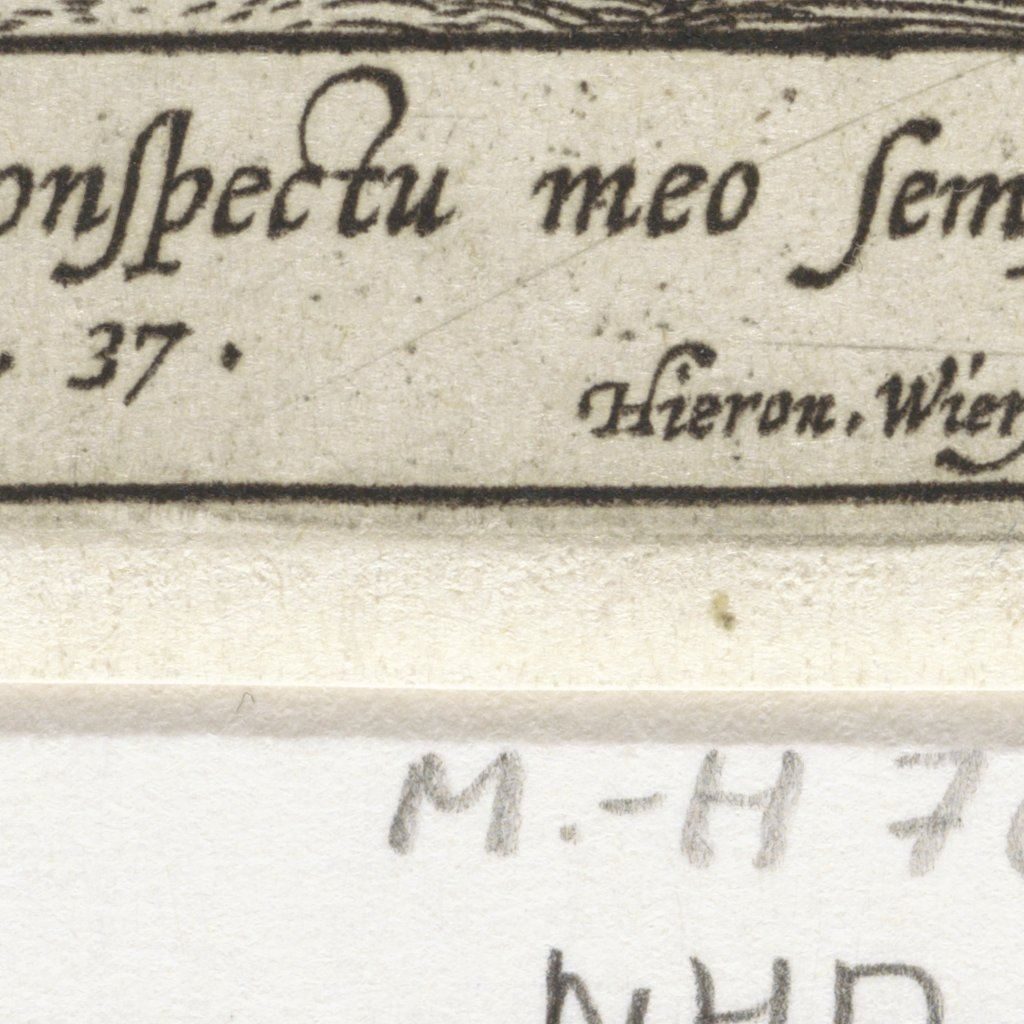 onſpectu meo ſem
. 37 .
Hieron. Wier
M.-H 7
NHD